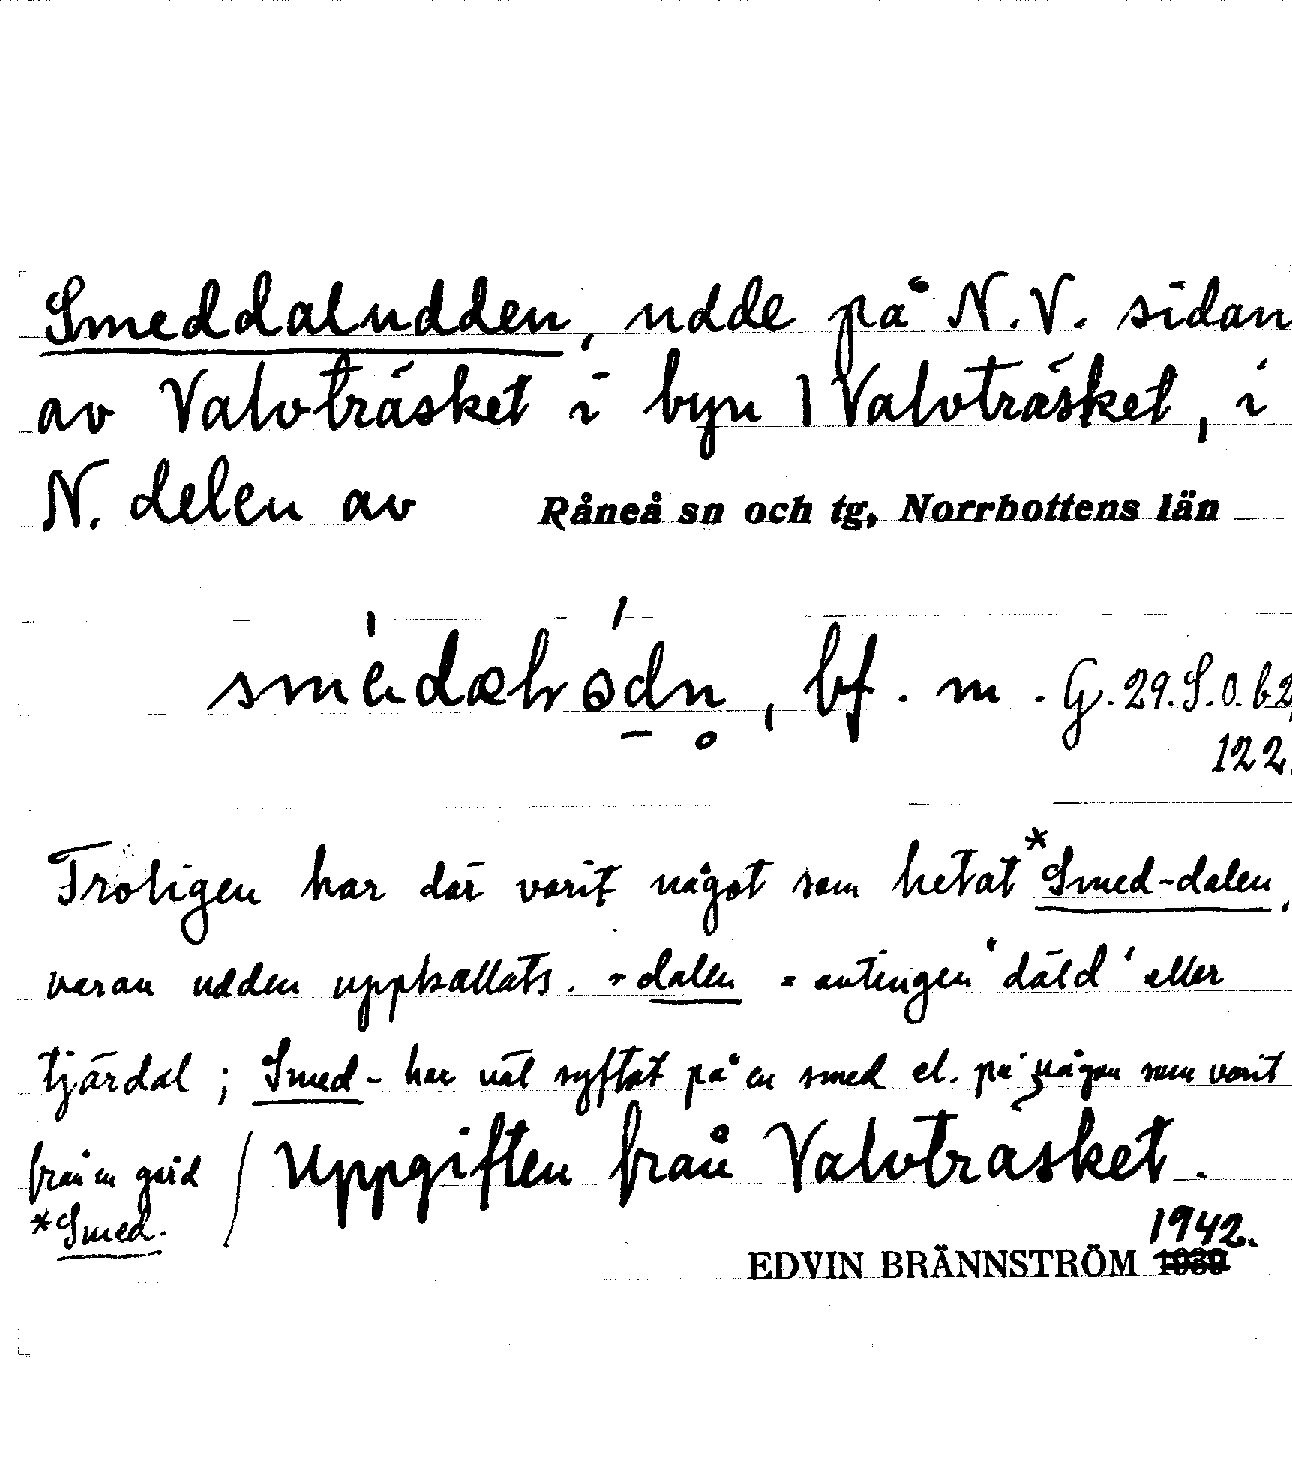 Smeddaludden, udde på N.V. sidan
av Valvträsket i byn Valvträsket, i
N. delen av Råneå sn och tg, Norrbottens län
bf. m. G. 29. S.O. b 2,
122.
Troligen har där varit något som hetat *Smed-dalen,
varan udden uppkallats. -dalen = antingen 'däld' eller
tjärdal; Smed- har väl syftat på en smed el. på någon som varit
från en gård / Uppgiften från Valvträsket.
*Smed-
1942.
EDVIN BRÄNNSTRÖM 1939